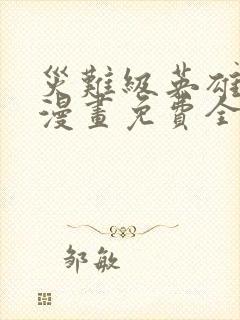 災難級英雄
漫畫免費全
邹敏